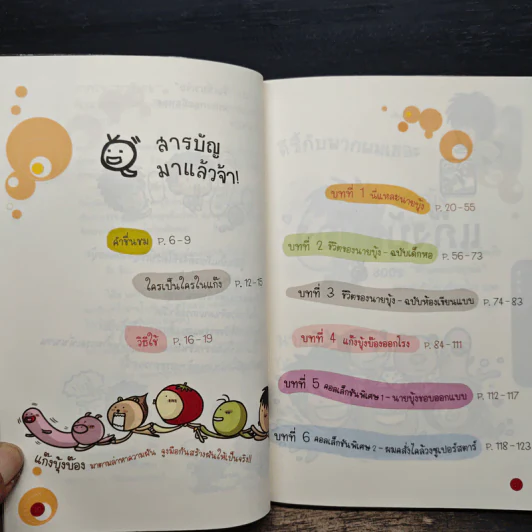 สารบัญ
มาแล้วจ้า!
คำชื่นชม P. 6-9
ใครเป็นใครในแก๊ง P. 12-15
วิธีใช้ P. 16-19
แก๊งบุ้งบ๊อง มาตามล่าหาความฝัน จูงมือกันสร้างฝันให้เป็นจริง!!
บทที่ 1 นี่แหละนายบุ้ง P. 20-55
บทที่ 2 ชีวิตของนายบุ้ง - ฉบับเด็กหอ P. 56-73
บทที่ 3 ชีวิตของนายบุ้ง - ฉบับห้องเรียนแบบ P. 74-83
บทที่ 4 แก๊งบุ้งบ๊องออกโรง P. 84-111
บทที่ 5 คอลเล็กชันพิเศษ 1 - นายบุ้งชอบออกแบบ P. 112-117
บทที่ 6 คอลเล็กชันพิเศษ 2 - ผมคลั่งไคล้วงซูเปอร์สตาร์ P. 118-123